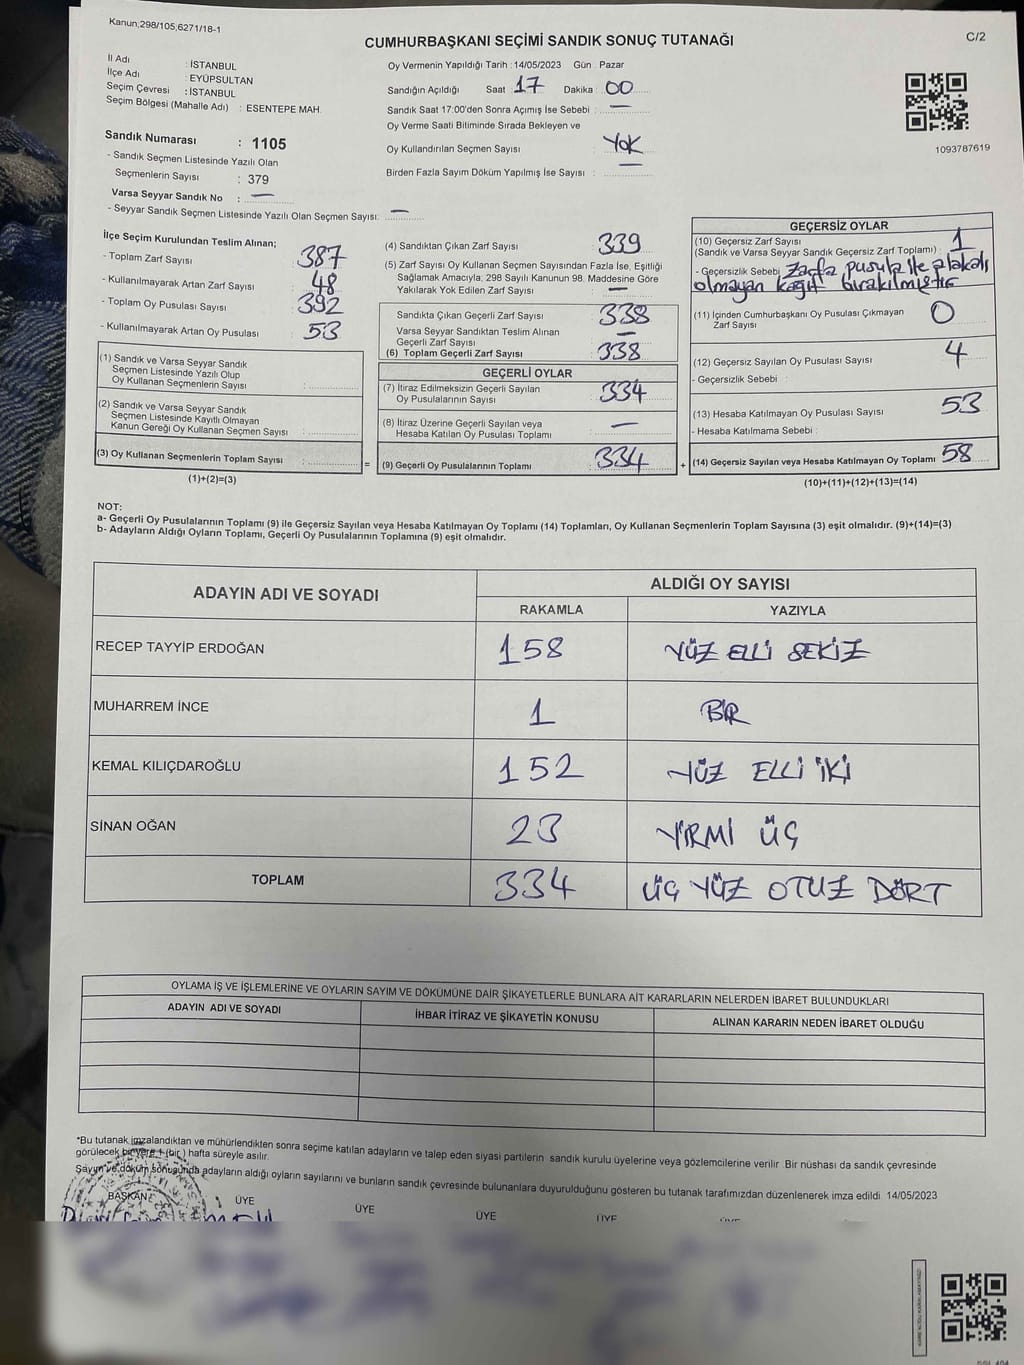 Kanun;298/105;6271/18-1
C/2
CUMHURBAŞKANI SEÇİMİ SANDIK SONUÇ TUTANAĞI
İl Adı : İSTANBUL
İlçe Adı : EYÜPSULTAN
Seçim Çevresi : İSTANBUL
Seçim Bölgesi (Mahalle Adı) : ESENTEPE MAH.
Sandık Numarası : 1105
- Sandık Seçmen Listesinde Yazılı Olan
Seçmenlerin Sayısı : 379
Varsa Seyyar Sandık No : —
- Seyyar Sandık Seçmen Listesinde Yazılı Olan Seçmen Sayısı: —
Oy Vermenin Yapıldığı Tarih : 14/05/2023 Gün : Pazar
Sandığın Açıldığı Saat : 17 Dakika : 00
Sandık Saat 17:00'den Sonra Açımış İse Sebebi : —
Oy Verme Saati Bitiminde Sırada Bekleyen ve
Oy Kullandırılan Seçmen Sayısı : Yok
Birden Fazla Sayım Döküm Yapılmış İse Sayısı : —
1093787619
İlçe Seçim Kurulundan Teslim Alınan;
- Toplam Zarf Sayısı : 387
- Kullanılmayarak Artan Zarf Sayısı : 48
- Toplam Oy Pusulası Sayısı : 392
- Kullanılmayarak Artan Oy Pusulası : 53
(1) Sandık ve Varsa Seyyar Sandık
Seçmen Listesinde Yazılı Olup
Oy Kullanan Seçmenlerin Sayısı :
(2) Sandık ve Varsa Seyyar Sandık
Seçmen Listesinde Kayıtlı Olmayan
Kanun Gereği Oy Kullanan Seçmen Sayısı :
(3) Oy Kullanan Seçmenlerin Toplam Sayısı :
(1)+(2)=(3)
(4) Sandıktan Çıkan Zarf Sayısı : 339
(5) Zarf Sayısı Oy Kullanan Seçmen Sayısından Fazla İse, Eşitliği
Sağlamak Amacıyla; 298 Sayılı Kanunun 98. Maddesine Göre
Yakılarak Yok Edilen Zarf Sayısı : —
Sandıkta Çıkan Geçerli Zarf Sayısı : 338
Varsa Seyyar Sandıktan Teslim Alınan
Geçerli Zarf Sayısı : —
(6) Toplam Geçerli Zarf Sayısı : 338
GEÇERLİ OYLAR
(7) İtiraz Edilmeksizin Geçerli Sayılan
Oy Pusulalarının Sayısı : 334
(8) İtiraz Üzerine Geçerli Sayılan veya
Hesaba Katılan Oy Pusulası Toplamı : —
= (9) Geçerli Oy Pusulalarının Toplamı : 334
GEÇERSİZ OYLAR
(10) Geçersiz Zarf Sayısı
(Sandık ve Varsa Seyyar Sandık Geçersiz Zarf Toplamı) : 1
- Geçersizlik Sebebi : Zarfa pusula ile alakalı
olmayan kağıt bırakılmıştır
(11) İçinden Cumhurbaşkanı Oy Pusulası Çıkmayan
Zarf Sayısı : 0
(12) Geçersiz Sayılan Oy Pusulası Sayısı : 4
- Geçersizlik Sebebi :
(13) Hesaba Katılmayan Oy Pusulası Sayısı : 53
- Hesaba Katılmama Sebebi :
+ (14) Geçersiz Sayılan veya Hesaba Katılmayan Oy Toplamı : 58
(10)+(11)+(12)+(13)=(14)
NOT:
a- Geçerli Oy Pusulalarının Toplamı (9) ile Geçersiz Sayılan veya Hesaba Katılmayan Oy Toplamı (14) Toplamları, Oy Kullanan Seçmenlerin Toplam Sayısına (3) eşit olmalıdır. (9)+(14)=(3)
b- Adayların Aldığı Oyların Toplamı, Geçerli Oy Pusulalarının Toplamına (9) eşit olmalıdır.
ADAYIN ADI VE SOYADI ALDIĞI OY SAYISI
RAKAMLA YAZIYLA
RECEP TAYYİP ERDOĞAN 158 YÜZ ELLİ SEKİZ
MUHARREM İNCE 1 BİR
KEMAL KILIÇDAROĞLU 152 YÜZ ELLİ İKİ
SİNAN OĞAN 23 YİRMİ ÜÇ
TOPLAM 334 ÜÇ YÜZ OTUZ DÖRT
OYLAMA İŞ VE İŞLEMLERİNE VE OYLARIN SAYIM VE DÖKÜMÜNE DAİR ŞİKAYETLERLE BUNLARA AİT KARARLARIN NELERDEN İBARET BULUNDUKLARI
ADAYIN ADI VE SOYADI İHBAR İTİRAZ VE ŞİKAYETİN KONUSU ALINAN KARARIN NEDEN İBARET OLDUĞU
*Bu tutanak imzalandıktan ve mühürlendikten sonra seçime katılan adayların ve talep eden siyasi partilerin sandık kurulu üyelerine veya gözlemcilerine verilir. Bir nüshası da sandık çevresinde
görülecek bir yere 1 (bir) hafta süreyle asılır.
Sayım ve döküm sonuçunda adayların aldığı oyların sayılarını ve bunların sandık çevresinde bulunanlara duyurulduğunu gösteren bu tutanak tarafımızdan düzenlenerek imza edildi. 14/05/2023
BAŞKAN ÜYE ÜYE ÜYE ÜYE ÜYE